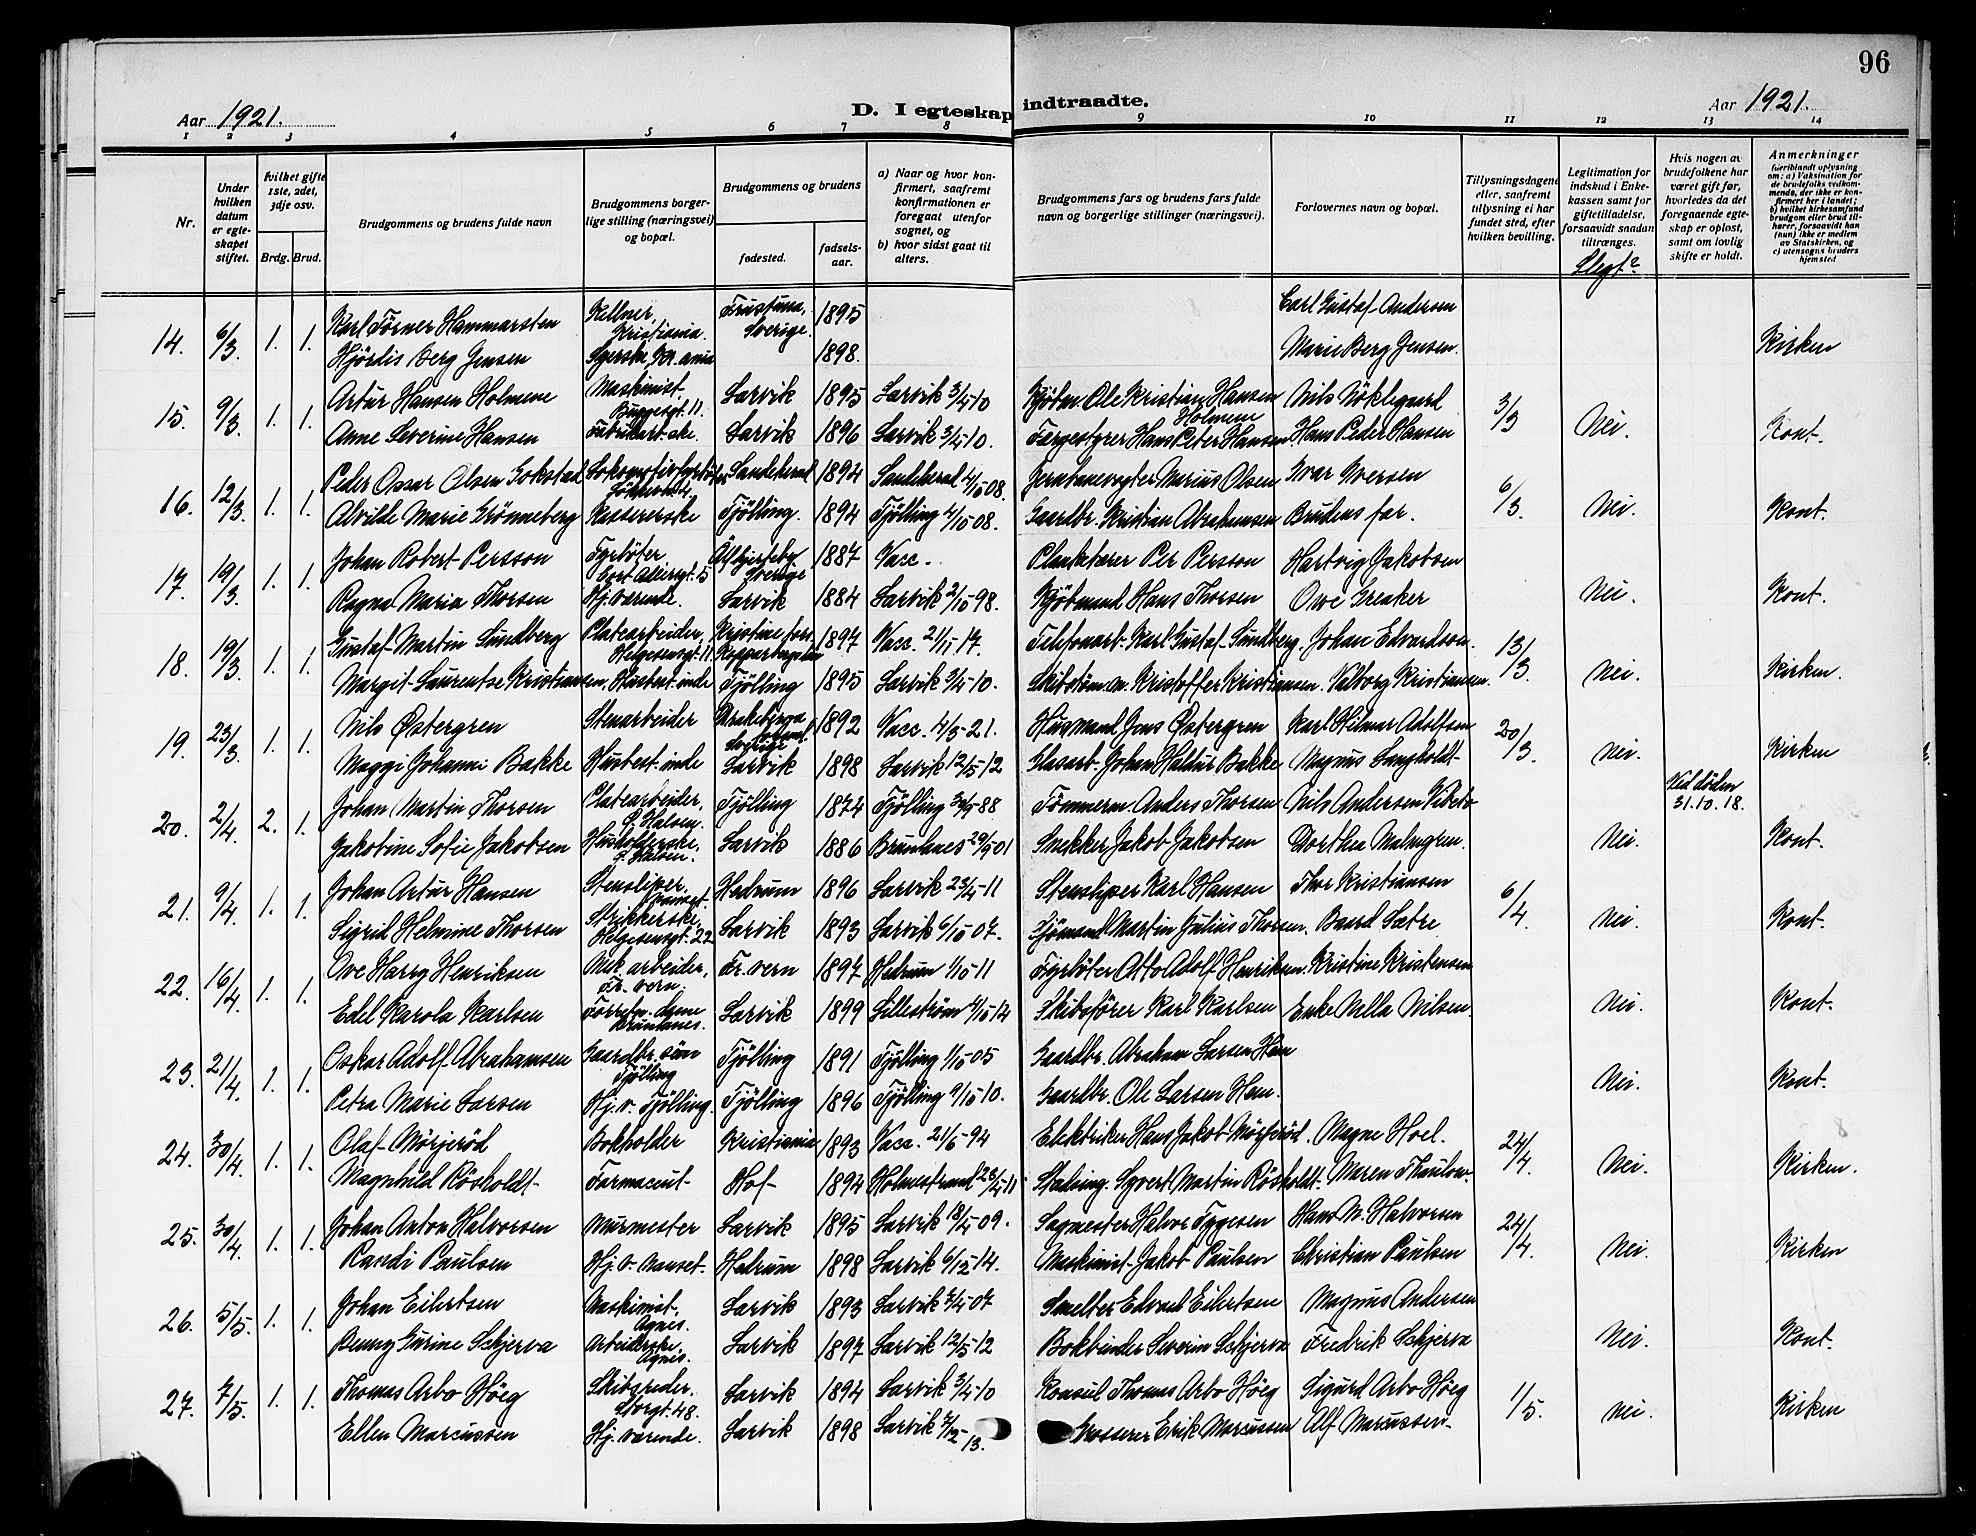 96
Aar 1921.
D. I egteskap indtraadte.
Aar 1921.
1 2 3 4 5 6 7 8 9 10 11 12 13 14
Nr.
Under hvilken datum er egteskapet stiftet.
hvilket gifte 1ste, 2det, 3dje osv.
Brdg. Brud.
Brudgommens og brudens fulde navn
Brudgommens borgerlige stilling (næringsvei) og bopæl.
Brudgommens og brudens
fødested.
fødselsaar.
a) Naar og hvor konfirmert, saafremt konfirmationen er foregaat utenfor sognet, og
b) hvor sidst gaat til alters.
Brudgommens fars og brudens fars fulde navn og borgerlige stillinger (næringsvei).
Forlovernes navn og bopæl.
Tillysningsdagene eller, saafremt tillysning ei har fundet sted, efter hvilken bevilling.
Legitimation for indskud i Enkekassen samt for giftetilladelse, forsaavidt saadan tiltrænges.
Slegt?
Hvis nogen av brudefolkene har været gift før, hvorledes da det foregaaende egteskap er opløst, samt om lovlig skifte er holdt.
Anmerkninger hieriblandt oplysning om: a) Vaksination for de brudefolks vedkommende, der ikke er konfirmert her i landet; b) hvilket kirkesamfund brudgom eller brud tilhører, forsaavidt han (hun) ikke er medlem av Statskirken, og c) utensogns bruders hjemsted
14. 6/3 1. 1. Karl Törner Hammarsten Kellner, Kristiania. Frustuna, Sverige. 1895 Carl Gustaf Andersen
Hjördis Berg Jensen Kr.ania 1898. Marie Berg Jensen. Kirken
15. 9/3 1. 1. Artur Hansen Holmene Maskinist. Buggesgt. 11. Larvik 1895 Larvik 3/4-10 Kjøbm. Ole Kristian Hansen Holmene Nils Nöklegaard 3/3
Anne Severine Hansen Fabrikarb.ske. Larvik 1896 Larvik 3/4-10. Færgestyrer Hans Peter Hansen Hans Peder Hansen Nei. Kont.
16. 12/3. 1. 1. Peder Oscar Olsen Gokstad Lokomotivfyrböter Sandeherad 1894 Sandeherad 4/10 08. Jernbanevogter Marius Olsen Ivar Iversen 6/3.
Alvilde Marie Grönneberg Kassererske Tjölling. 1894 Tjölling 4/10 08. Gaardbr. Kristian Abrahamsen Brudens far. Nei. Kont.
17. 19/3. 1. 1. Johan Robert Persson Fyrböter Sverige 1887 Vacc. Plankebærer Per Persson Hartvig Jakobsen
Ragna Maria Thorsen Hj. værende. Larvik 1884 Larvik 2/10-98. Kjöbmand Hans Thorsen Owe Greaker Nei. Kont.
18. 19/3. 1. 1. Gustaf Martin Lundberg Platearbeider, Helgesensgt. 11 1897 Vacc. 21/11 17. Telefonarb. Karl Gustaf Lundberg. Johan Edvardson. 13/3
Margit Laurentse Kristiansen, Husbest.inde Tjölling 1895 Larvik 3/4-10. Skibstöm.m. Kristoffer Kristiansen. Valborg Kristiansen. Nei. Kirken.
19. 23/3. 1. 1. Nils Østergren Stenarbeider Sverige 1892 Vacc. 4/3-21. Husmand Jons Østergren Karl Hilmar Adolfsen 20/3
Maggi Johanne Bakke Husbest.inde Larvik 1898 Larvik 12/5-12 Glasarb. Johan Haldur Bakke Magnus Langholdt Nei. Kirken
20. 2/4 2. 1. Johan Martin Thorsen Platearbeider, Ö. Halsen. Tjölling 1874 Tjölling 30/9-88 Tömmerm. Anders Thorsen Nils Andersen Vibeto Ved döden 31.10.18.
Jakobine Sofie Jakobsen Husholderske, Ö. Halsen. Larvik 1886 Brunlanes 29/9 01 Snekker Jakob Jakobsen Dorthea Malmgren. Nei. Kont.
21. 9/4. 1. 1. Johan Artur Hansen Stensliper, Hedrum 1896 Larvik 23/4-11 Stensliper Karl Hansen Thor Kristiansen 6/4
Sigrid Helmine Thorsen Strikkerske, Helgesensgt. 22 Larvik 1893 Larvik 6/10 07. Sjömand Martin Julius Thorsen. Baard Sætre Nei. Kont.
22. 16/4. 1. 1. Ove Harry Henriksen Mek. arbeider, Fr. vern. Fr. vern 1897 Hedrum 1/10-11 Fyrböter Otto Adolf Henriksen. Kristine Kristensen
Edel Karola Karlsen Forretn.dame Brunlanes. Larvik 1899 Lilleström 4/10-14 Skibsförer Karl Karlsen Enke Nilla Nilsen. Nei. Kont.
23. 21/4. 1. 1. Oskar Adolf Abrahamsen Gaardbr.sön Tjölling Tjölling 1891 Tjölling 1/10 05 Gaardbr. Abraham Larsen Hem
Petra Marie Larsen Hj. v. Tjölling. Tjölling 1896 Tjölling 9/10-10. Gaardbr. Ole Larsen Hem. Nei. Kont.
24. 30/4. 1. 1. Olaf Mörjeröd Bokholder Kristiania 1893 Vacc. 21/6-94 Elektriker Hans Jakob Mörjeröd. Magne Hoel. 24/4.
Magnhild Rösholdt Farmaceut Hof 1894 Holmestrand 23/4-11 Staling. Syvert Martin Rösholdt. Maren Thaulow. Nei. Kirken.
25. 30/4. 1. 1. Johan Anton Halvorsen Murmester Larvik 1895 Larvik 18/4-09. Sagmester Halvor Tygesen Hans M. Halvorsen 24/4.
Randi Paulsen Hj. v. Nanset. Hedrum 1898 Larvik 6/12-14. Maskinist Jakob Paulsen Christian Paulsen Nei. Kirken
26. 5/5. 1. 1. Johan Eilertsen Maskinist, Agnes. Larvik 1893 Larvik 7/4-07 Smelter Edvard Eilertsen Magnus Andersen
Benny Gurine Schjerva Arbeiderske, Agnes. Larvik 1897 Larvik 12/5-12 Bokbinder Severin Schjerva Fredrik Schjerva Nei. Kont.
27. 7/5. 1. 1. Thomas Arbo Höeg Skibsreder, Storgt. 48. Larvik 1894 Larvik 3/4-10 Konsul Thomas Arbo Höeg Sigurd Arbo Höeg 1/5.
Ellen Marcussen Hj. værende. Larvik 1898 Larvik Grosserer Erik Marcussen Alf Marcussen Nei. Kirken